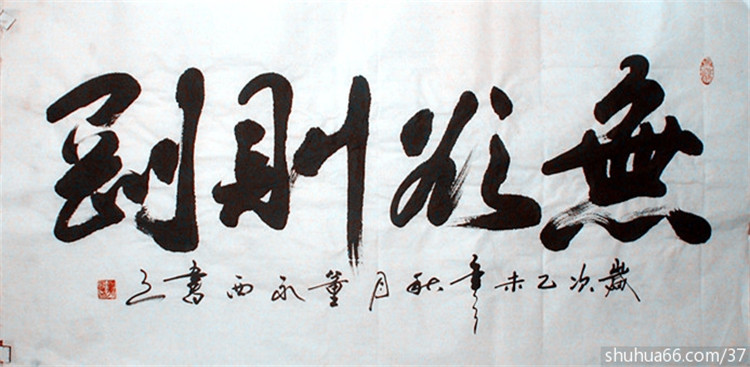 無欲則剛
歲次乙未年秋月董永西書之
shuhua66.com/37